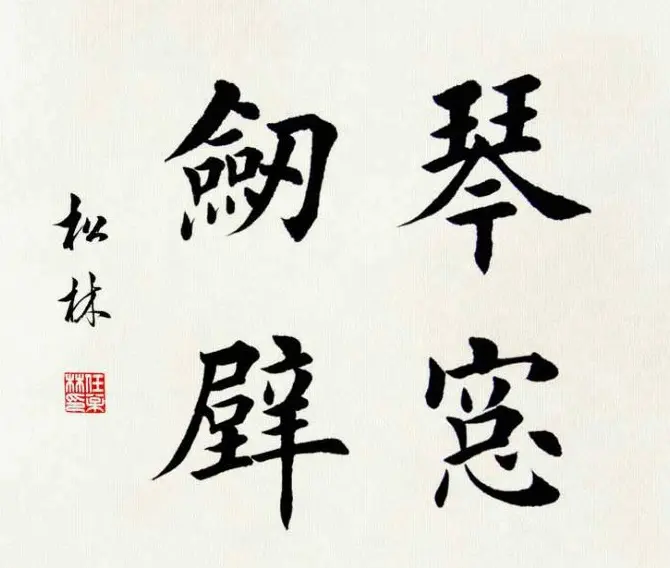 琴窓
劒壁
松林
任松林印